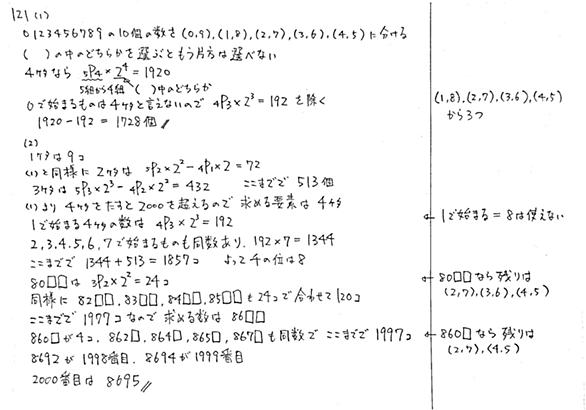 121 (1)
0123456789の10個の数を(0,9),(1,8),(2,7),(3,6),(4,5)に分ける
( )の中のどちらかを選ぶともう片方は選べない
4ケタなら 5P4×2^4=1920
5組から4組 ( )中のどちらか
0で始まるものは4ケタと言えないので 4P3×2^3=192 を除く
1920-192=1728個
(1,8),(2,7),(3,6),(4,5)
から3つ
(2)
1ケタは9コ
(1)と同様に 2ケタは 5P2×2^2-4P1×2=72
3ケタは 5P3×2^3-4P2×2^2=432 ここまでで513個
(1)より 4ケタをたすと2000を超えるので 求める要素は4ケタ
1で始まる4ケタの数は 4P3×2^3=192
← 1で始まる=8は使えない
2,3,4,5,6,7で始まるものも同数あり、192×7=1344
ここまでで 1344+513=1857コ よって千の位は8
80□□は 3P2×2^2=24コ
← 80□□なら残りは
(2,7),(3,6),(4,5)
同様に 82□□,83□□,84□□,85□□も24コで合わせて120コ
ここまでで 1977コなので 求める数は86□□
860□が4コ、862□,864□,865□,867□も同数で ここまでで1997コ
← 860□なら残りは
(2,7),(4,5)
8692が1998番目、8694が1999番目
2000番目は 8695